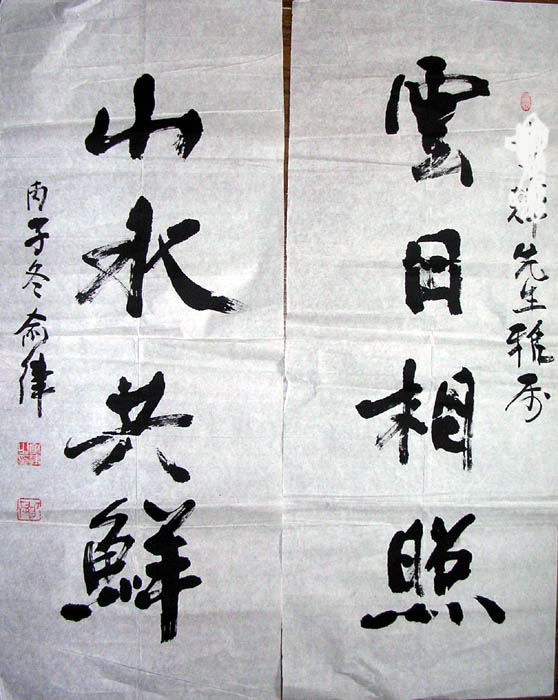 先生雅属
雲日相照
山水共鮮
丙子冬俞律